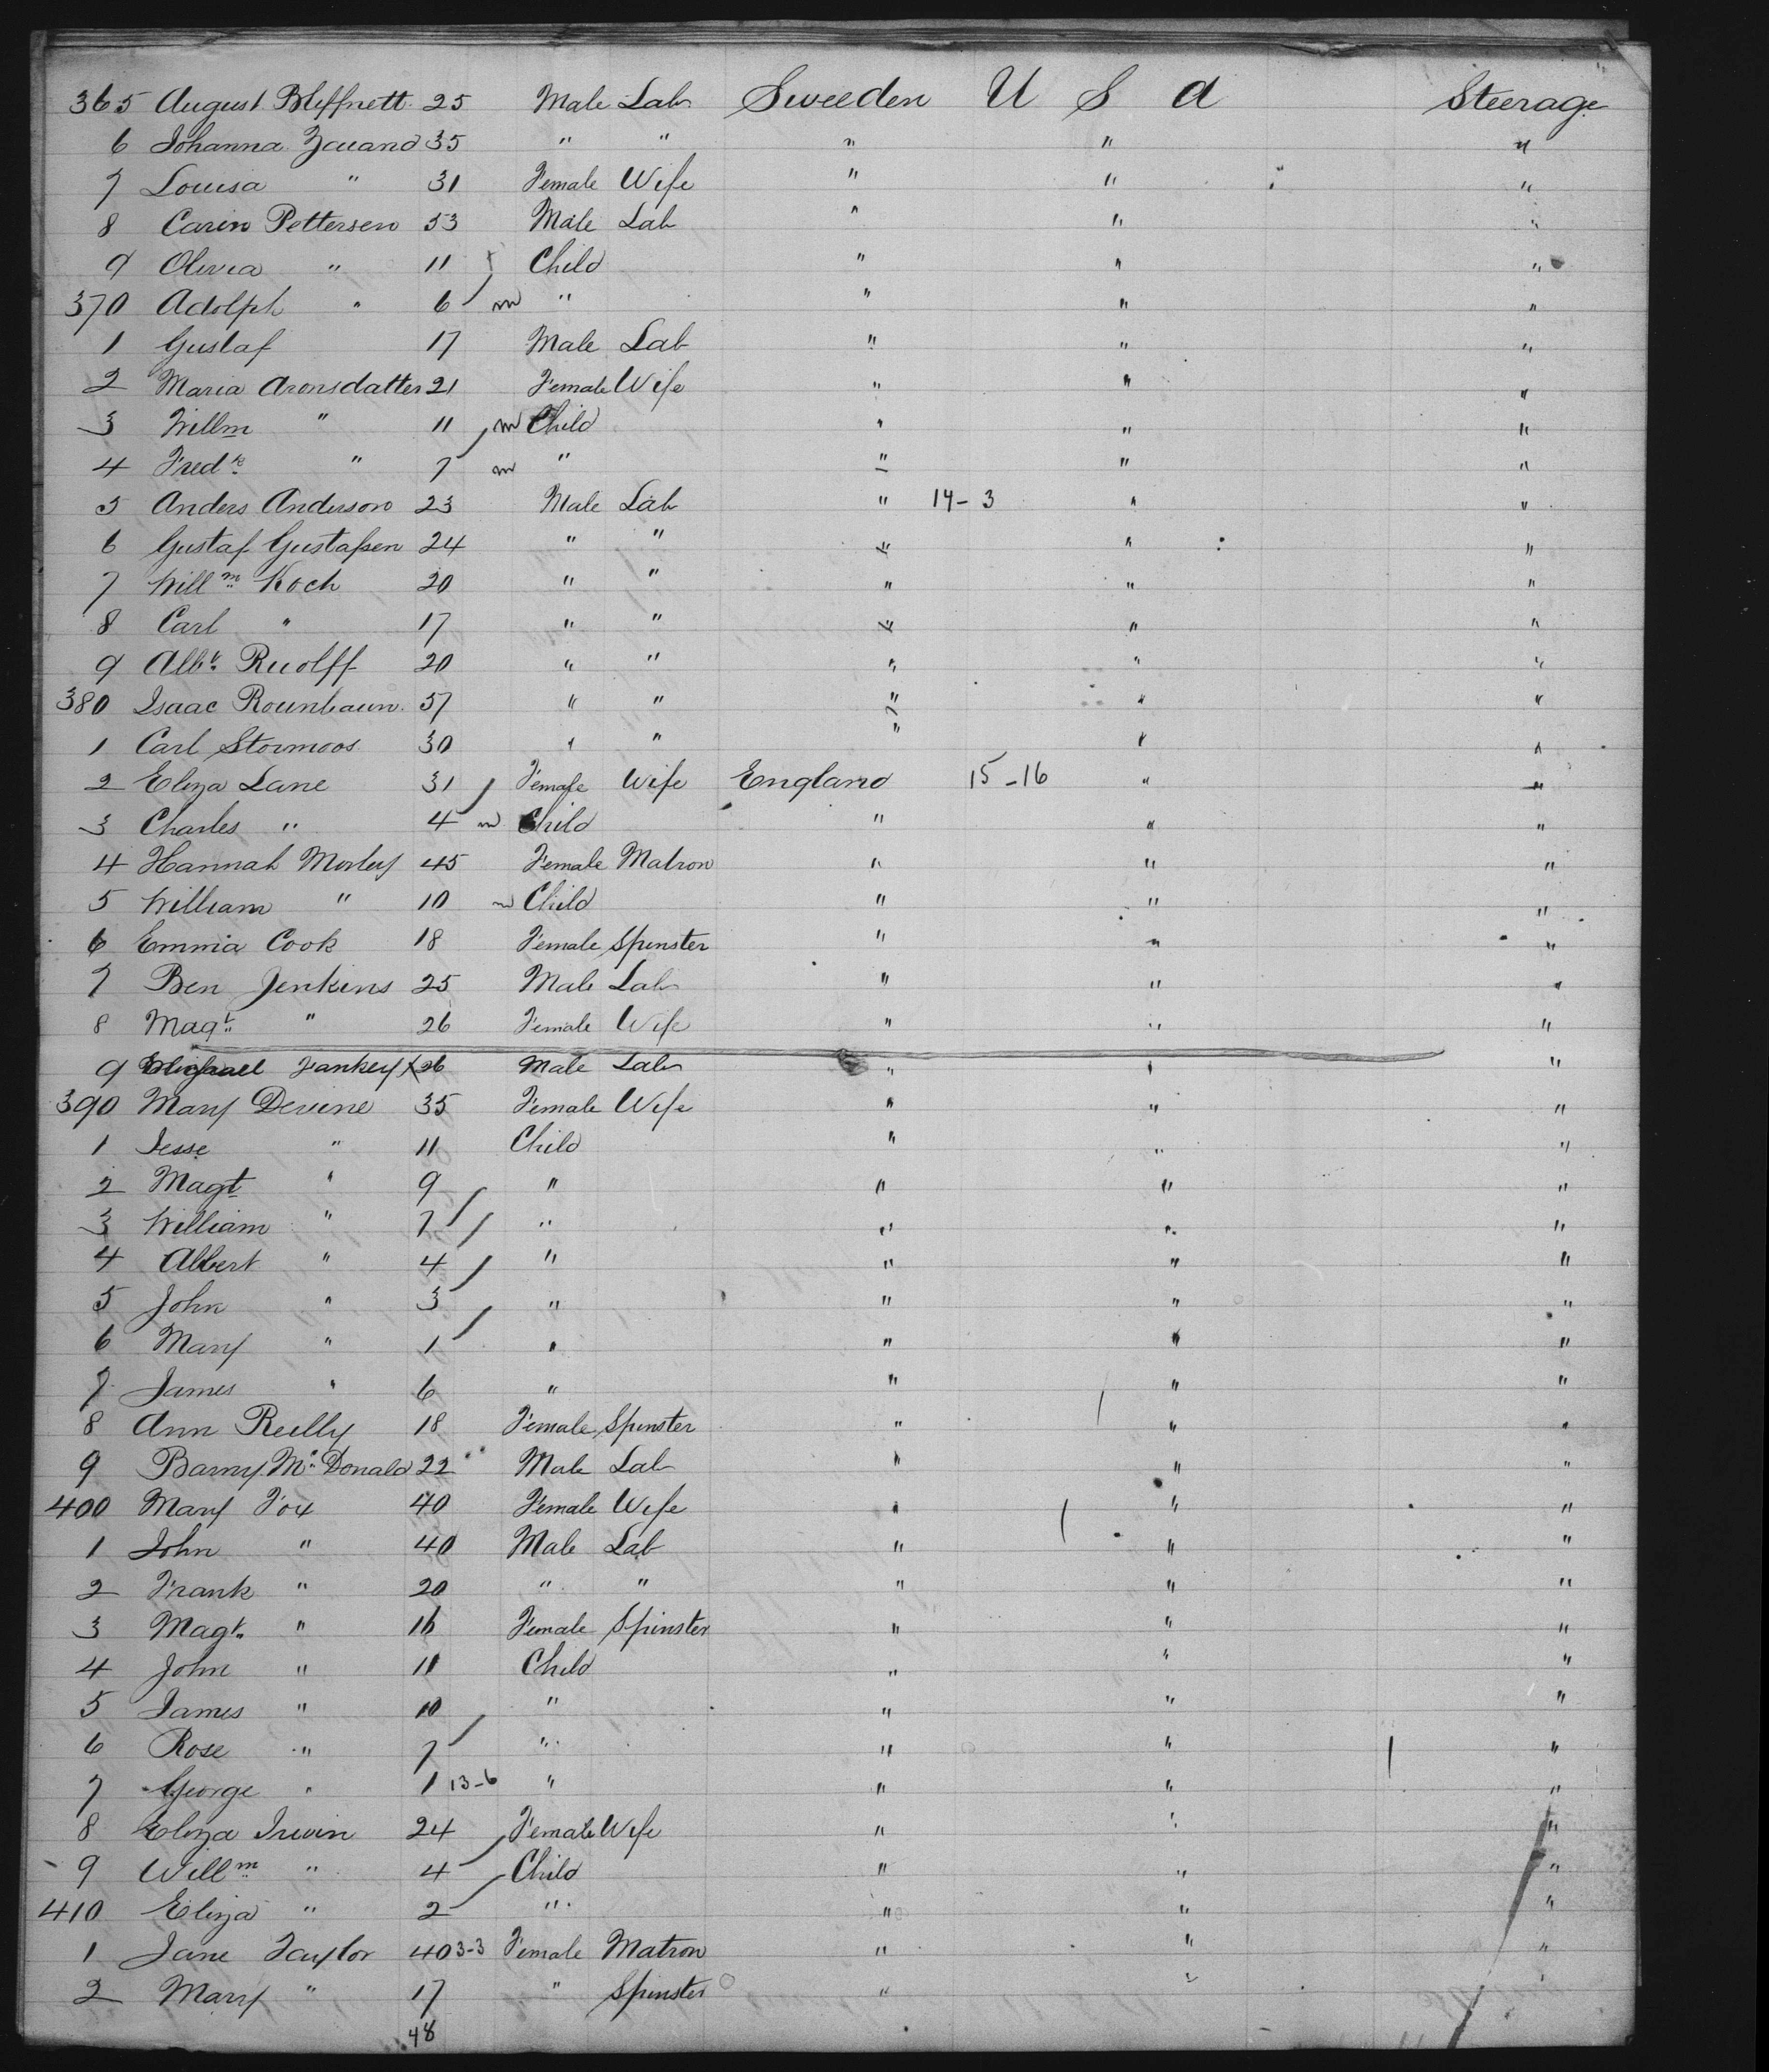 365 August Bleffnett 25 Male Lab Sweeden U S A Steerage
6 Johanna Zauand 35 " " " " "
7 Louisa " 31 Female Wife " " "
8 Carin Pettersen 53 Male Lab " " "
9 Olivia " 11 Child " " "
370 Adolph " 6 m " " " "
1 Gustaf 17 Male Lab " " "
2 Maria Aronsdatter 21 Female Wife " " "
3 Willm " 11 m Child " " "
4 Fredk " 7 m " " " "
5 Anders Anderson 23 Male Lab " 14-3 " "
6 Gustaf Gustafsen 24 " " " " "
7 Willm Koch 20 " " " " "
8 Carl " 17 " " " " "
9 Albt Ruolff 20 " " " " "
380 Isaac Rounbaun 57 " " " " "
1 Carl Stormoos 30 " " " " "
2 Eliza Lane 31 Female Wife England 15-16 " "
3 Charles " 4 m Child " " "
4 Hannah Morley 45 Female Matron " " "
5 William " 10 m Child " " "
6 Emmia Cook 18 Female Spinster " " "
7 Ben Jenkins 25 Male Lab " " "
8 Magt " 26 Female Wife " " "
9 Michael Fankey X 26 Male Lab " " "
390 Mary Devine 35 Female Wife " " "
1 Jesse " 11 Child " " "
2 Magt " 9 " " " "
3 William " 7 " " " "
4 Albert " 4 " " " "
5 John " 3 " " " "
6 Mary " 1 " " " "
7 James " 6 " " " "
8 Ann Reilly 18 Female Spinster " " "
9 Barny McDonald 22 Male Lab " " "
400 Mary Fox 40 Female Wife " " "
1 John " 40 Male Lab " " "
2 Frank " 20 " " " " "
3 Magt " 16 Female Spinster " " "
4 John " 11 Child " " "
5 James " 10 " " " "
6 Rose " 7 " " " "
7 George " 1 13-6 " " " "
8 Eliza Irwin 24 Female Wife " " "
9 Willm " 4 Child " " "
410 Eliza " 2 " " " "
1 Jane Taylor 40 3-3 Female Matron " " "
2 Mary " 17 " Spinster " " "
48